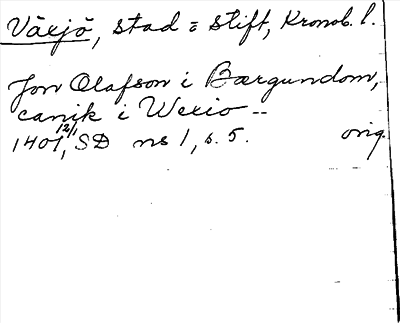 Växjö, stad o stift, Kronob. l.
Jon Olafson i Bærgundom,
canik i Wexio --
1401 12/1, SD ns 1, s. 5. orig.